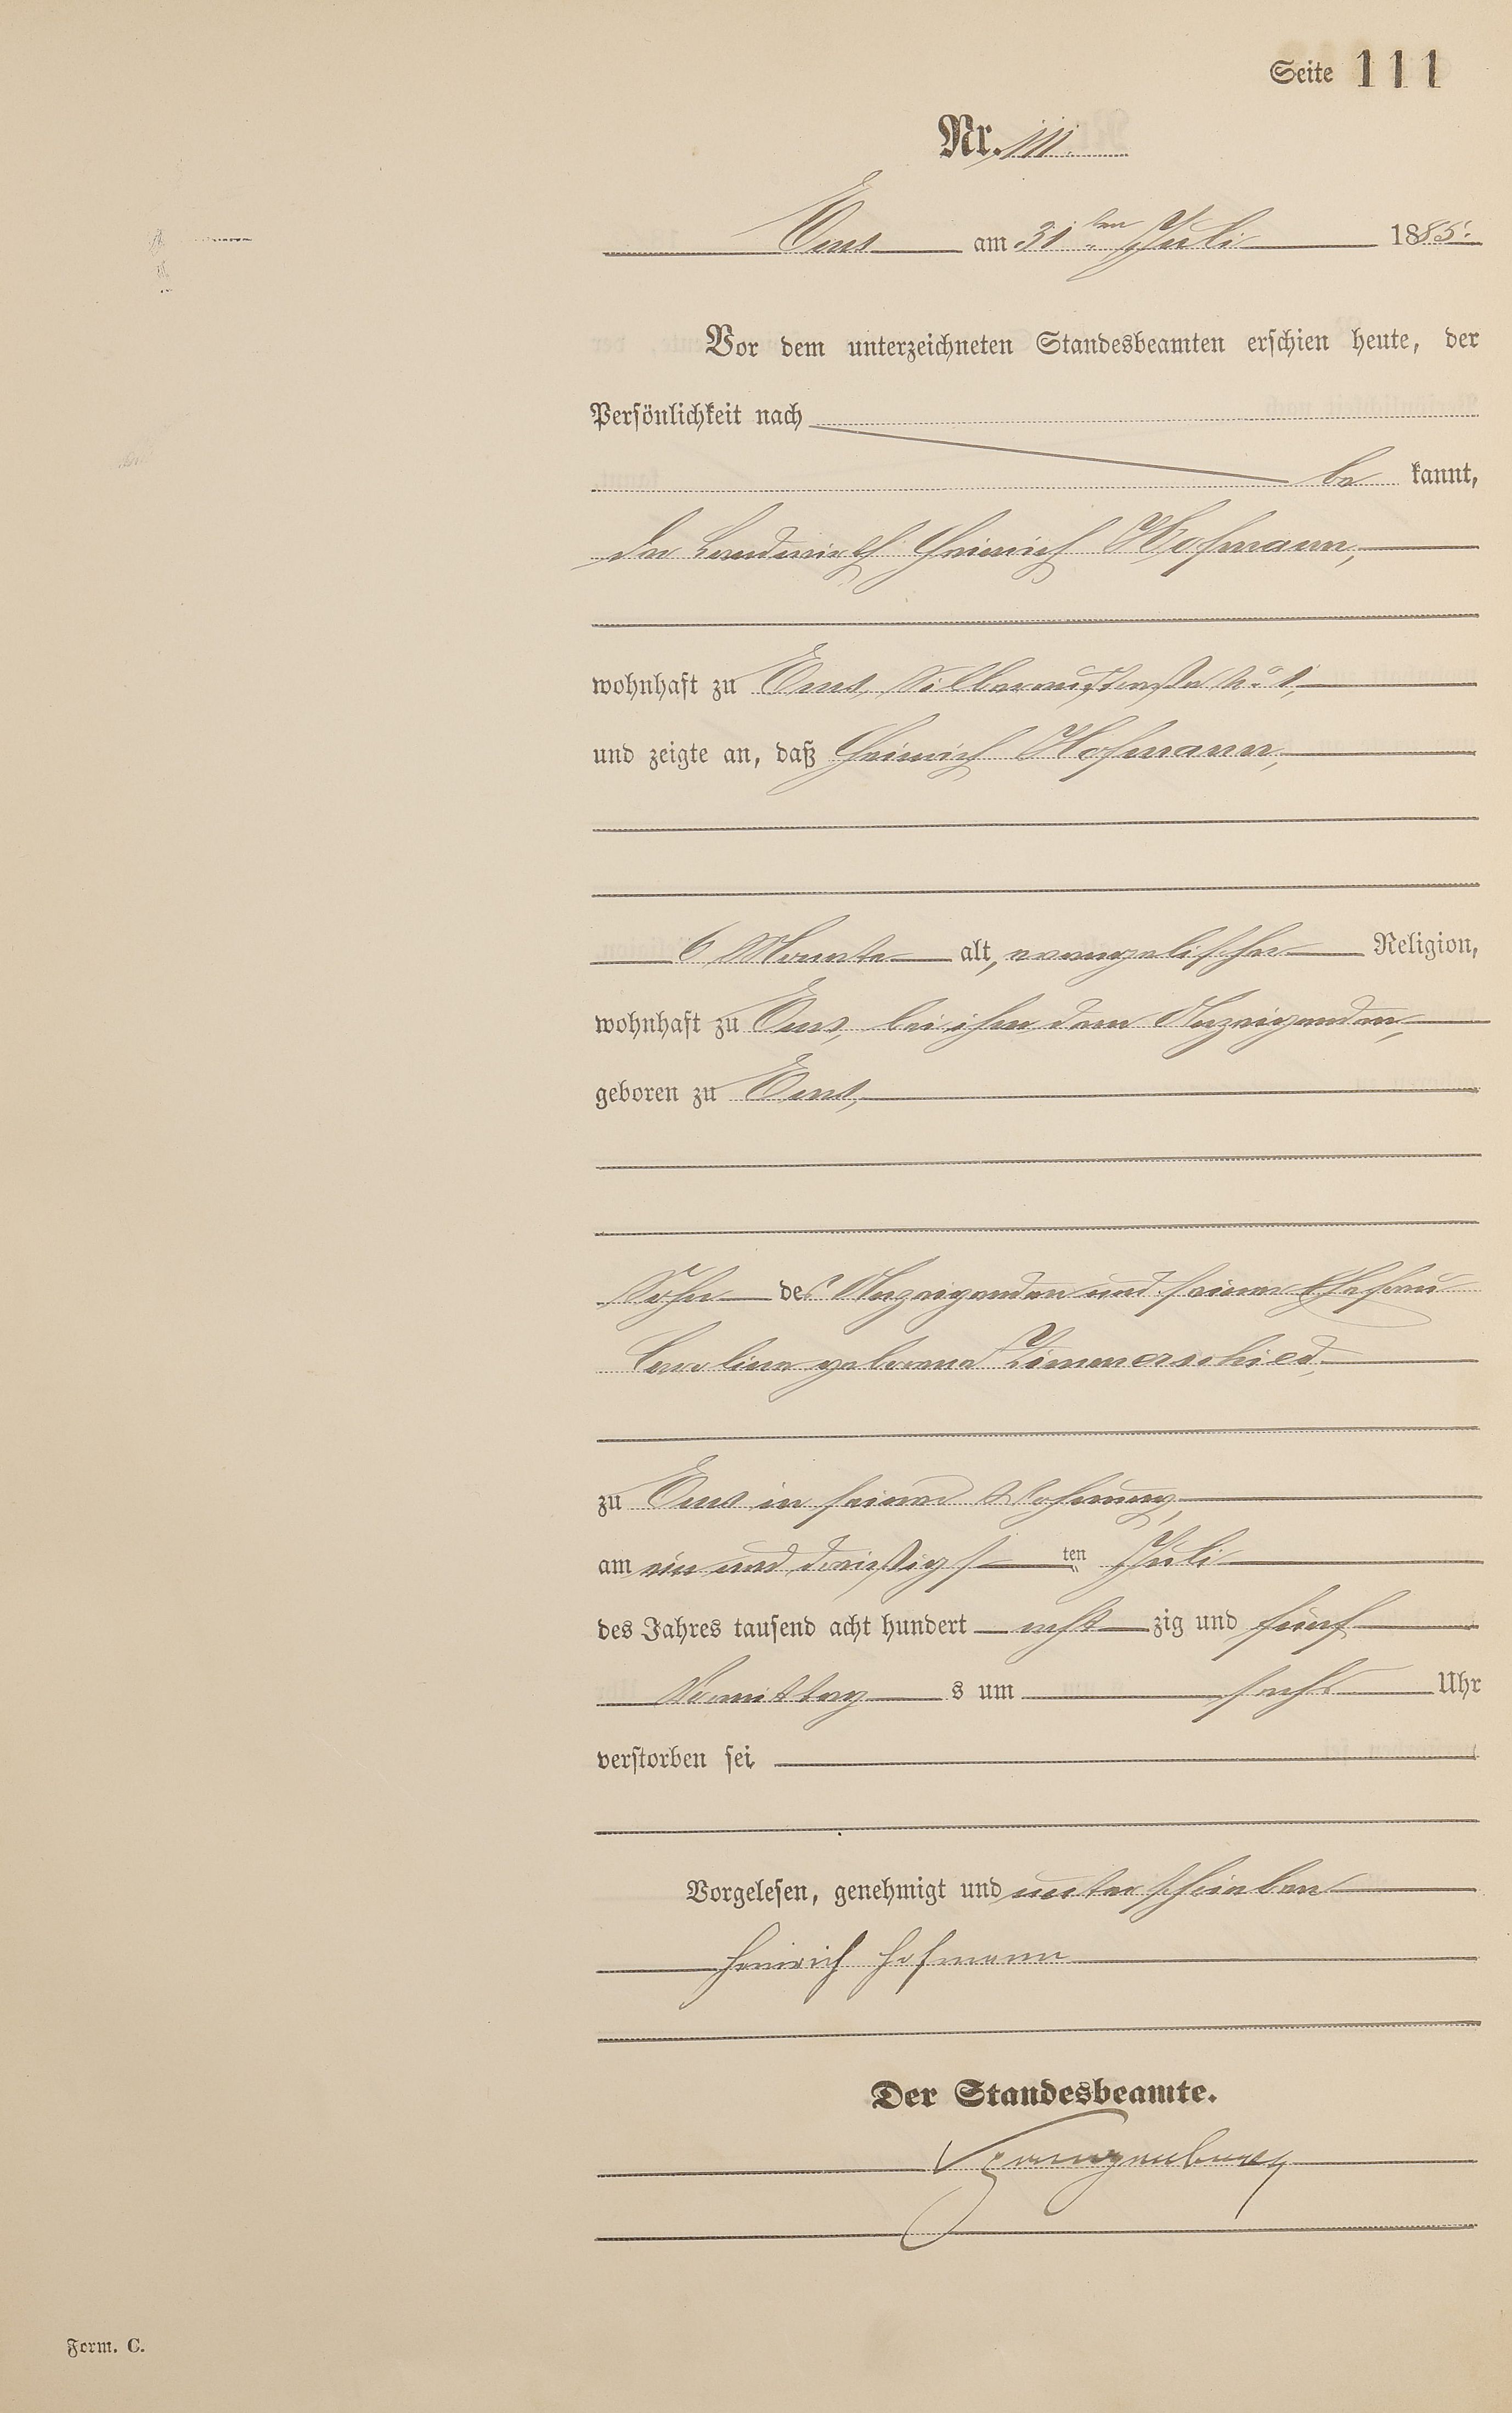 Seite 111
Nr. 111.
Ems am 31ten Juli 1885.
Vor dem unterzeichneten Standesbeamten erschien heute, der
Persönlichkeit nach
be kannt,
der Landwirth Heinrich Hofmann,
wohnhaft zu Ems, Silberaustraße No 1,
und zeigte an, daß Heinrich Hofmann,
6 Monate alt, evangelischer Religion,
wohnhaft zu Ems, bei ihm dem Anzeigenden,
geboren zu Ems,
Sohn des Anzeigenden und seiner Ehefrau
Caroline geborene Zimmerschied,
zu Ems in seiner Wohnung,
am ein und dreißigsten Juli
des Jahres tausend acht hundert acht zig und fünf
Vormittag s um sechs Uhr
verstorben sei
Vorgelesen, genehmigt und unterschrieben
Heinrich Hofmann
Der Standesbeamte.
Form. C.